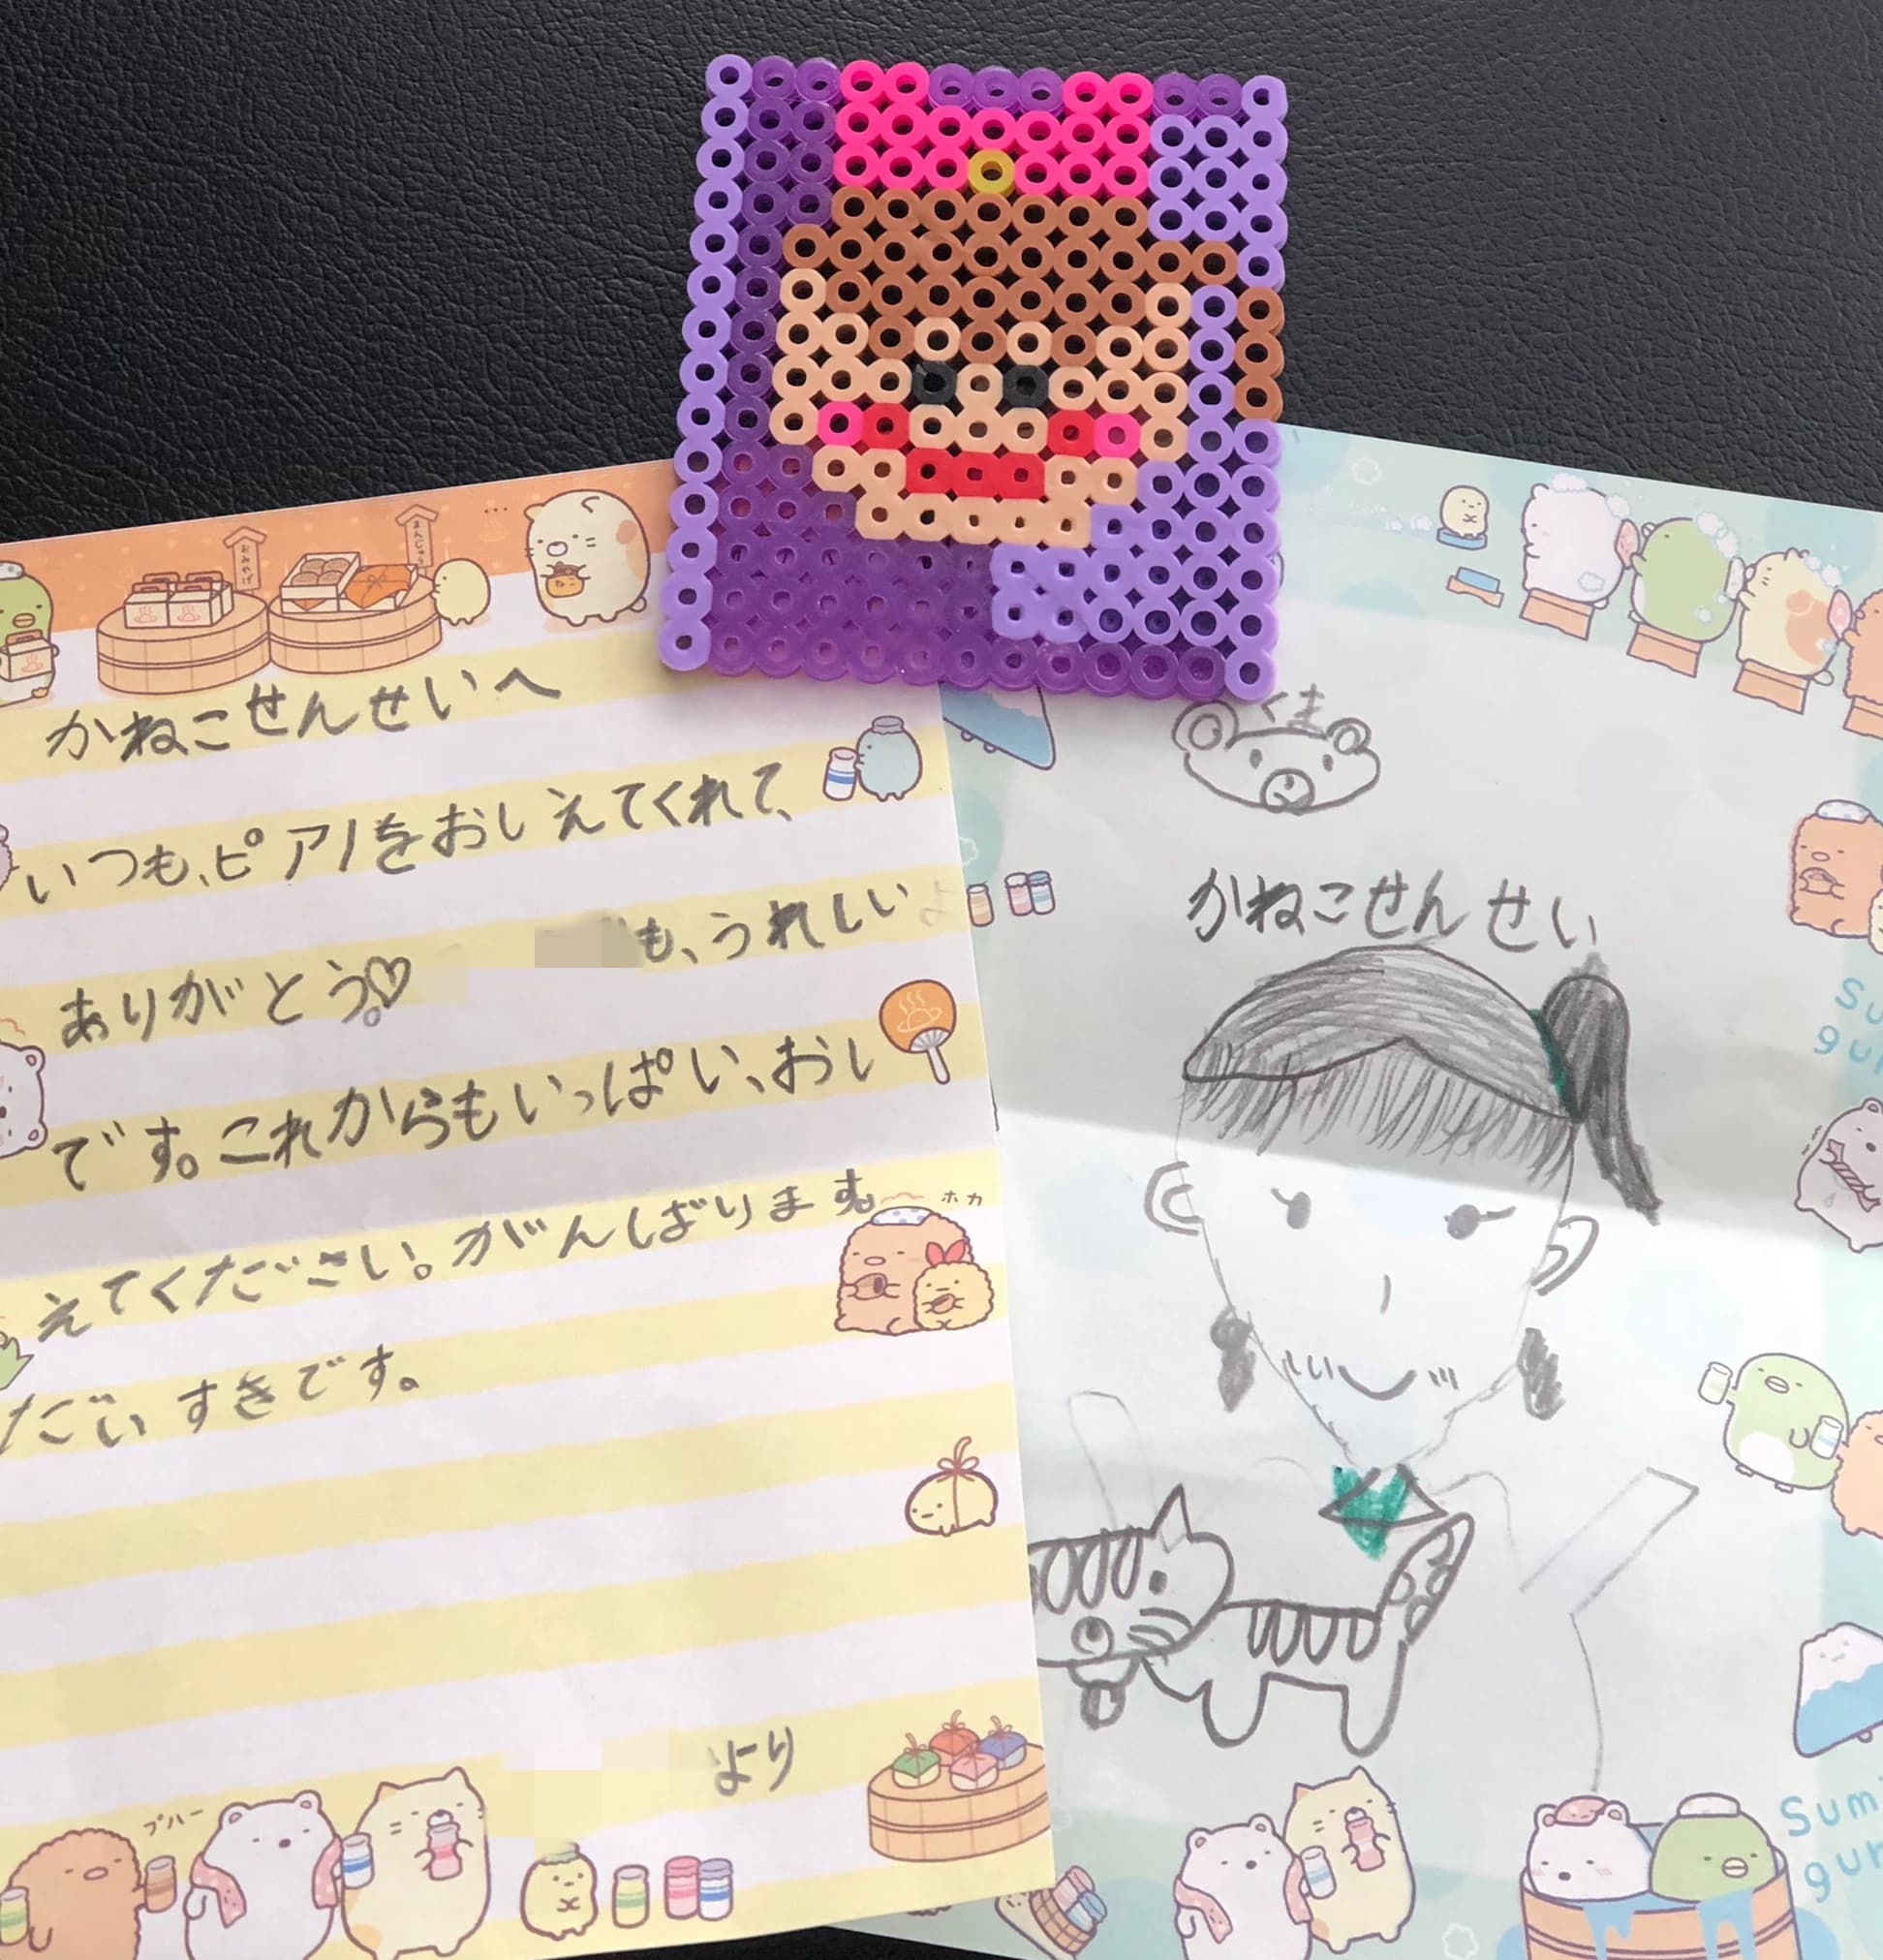 かねこせんせいへ
いつも、ピアノをおしえてくれて、
ありがとう。♡
も、うれしいよ
です。これからもいっぱい、おし
えてください。がんばります。
だいすきです。
より
くま
かねこせんせい
おみやげ
まんじゅう
ホカ
プハー
Su
gur
Sumi
gur